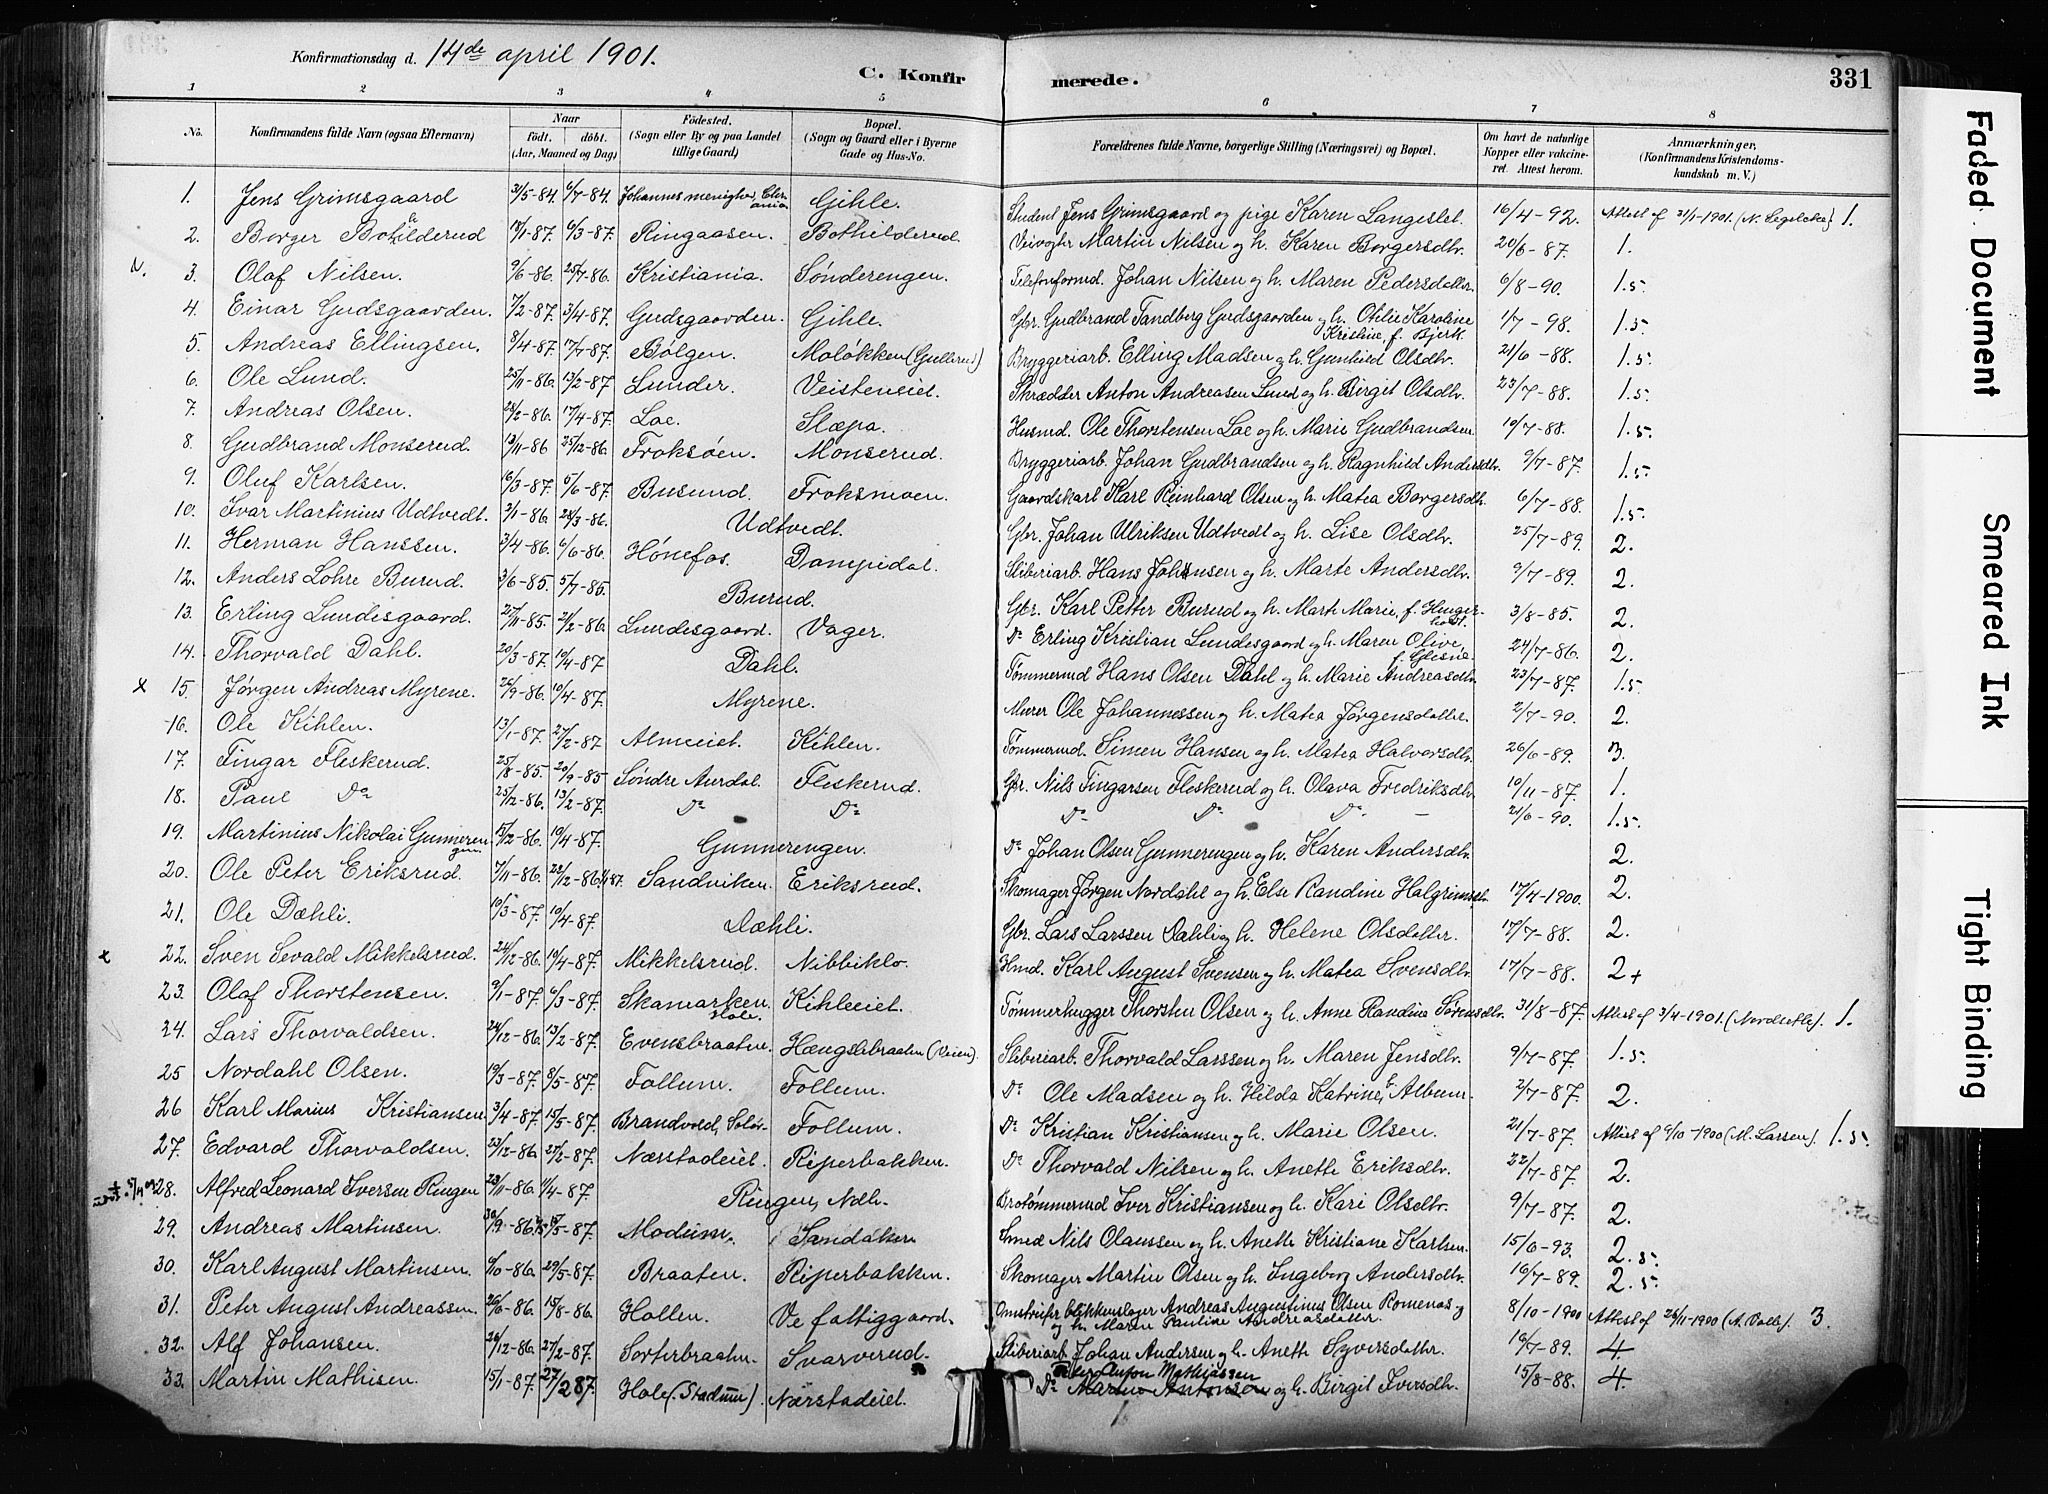 Konfirmationsdag d. 14de april 1901.
C. Konfirmerede.
331
1 2 3 4 5 6 7 8
No. Konfirmandens fulde Navn (ogsaa Efternavn) Naar födt. döbt. (Aar, Maaned og Dag) Födested. (Sogn eller By og paa Landet tillige Gaard) Bopæl. (Sogn og Gaard eller i Byerne Gade og Hus-No. Forældrenes fulde Navne, borgerlige Stilling (Næringsvei) og Bopæl. Om havt de naturlige Kopper eller vakcineret. Attest herom. Anmærkninger. (Konfirmandens Kristendomskundskab m. V.)
1. Jens Grimsgaard 31/5-84. 6/7-84. Johannes menighed, Gihle. Student Jens Grimsgaard og pige Karen Langeslet. 16/4-92. Attest af 31/1-1901. 1.
2. Borger Bothilderud 6/3-87. Ringaasen. Bothilderud. Veivogter Martin Nilsen og h. Karen Borgersdtr. 20/6-87. 1.
3. Olaf Nilsen. 9/6-86. 25/7-86. Kristiania. Sønderengen. Telefonformd. Johan Nilsen og h. Maren Pedersdatter. 6/8-90. 1.5.
4. Einar Gudsgaarden. 7/2-87. 3/4-87. Gudsgaarden. Gihle. Gbr. Gudbrand Tandberg Gudsgaarden og h. Otilie Karoline Kristine f. Bjerk. 1/7-98. 1.5.
5. Andreas Ellingsen. 8/4-87. 17/7-87. Bølgen. Moløkken (Gullerud) Bryggeriarb. Elling Madsen og h. Gunhild Olsdtr. 21/6-88. 1.5.
6. Ole Lund. 25/11-86. 13/2-87. Lunder. Veisteneiet. Skrædder Anton Andreasen Lund og h. Birgit Olsdtr. 23/7-88. 1.5.
7. Andreas Olsen. 28/2-86. 17/4-87. Loe. Slæpa. Husmd. Ole Thorstensen Loe og h. Marie Gudbrandsen. 19/7-88. 1.5.
8. Gudbrand Monserud. 13/11-86 25/12-86. Froksøen. Monserud. Bryggeriarb. Johan Gudbrandsen og h. Ragnhild Andersdtr. 9/7-87. 1.5
9. Oluf Karlsen. 16/3-87. 5/6-87. Busund. Froksmoen. Gaardskarl Karl Reinhard Olsen og h. Matea Borgersdtr. 6/7-88. 1.5.
10. Ivar Martinius Udtvedt. 2/1-86. 28/3-86. Udtvedt. Gbr. Johan Ulriksen Udtvedt og h. Lise Olsdtr. 25/7-89. 2.
11. Herman Hanssen. 3/4-86. 6/6-86. Hønefos. Dampedal. Sliberiarb. Hans Johansen og h. Marte Andersdtr. 9/7-89. 2.
12. Anders Lohre Burud. 3/6-85. 5/7-85. Burud. Gbr. Karl Petter Burud og h. Mart. Marie, f. 3/8-85. 2.
13. Erling Lundesgaard. 27/11-85. 2/2-86. Lundesgaard. Vager. Do Erling Kristian Lundesgaard og h. Maren Olive, f. Glesne 24/7-86. 2.
14. Thorvald Dahl. 20/3-87. 10/4-87 Dahl. Tømmermd Hans Olsen Dahl og h. Marie Andreasdtr. 23/7-87. 1.5
x 15. Jørgen Andreas Myrene. 26/9-86. 10/4-87. Myrene. Murer Ole Johannessen og h. Matea Jørgensdatter. 2/7-90. 2.
16. Ole Kihlen. 13/1-87. 27/2-87 Almeiet. Kihlen. Tømmermd. Simen Hansen og h. Matea Halvorsdtr. 26/6-89. 3.
17. Tingar Fleskerud. 25/8-85. 20/9-85 Søndre Aurdal. Fleskerud. Gbr. Nils Tingarsen Fleskerud og h. Olava Fredriksdtr. 10/11-87. 1.
18. Paul Do 25/12-86. 13/2-87. Do Do Do Do Do 21/6-90. 1.5.
19. Martinius Nikolai Gunnerengen. 15/12-86. 10/4-87. Gunnerengen. Do Johan Olsen Gunnerengen og h. Karen Andersdtr. 2.
20. Ole Peter Eriksrud. 7/11-86. Sandviken. Eriksrud. Skomager Jørgen Nordahl og h. Else Randine Halgrimsdtr. 17/4-1900. 2.
21. Ole Dæhli. 10/3-87. 10/4-87. Dæhli. Gbr. Lars Larssen Dæhli og h. Helene Olsdatter. 17/7-88. 2.
x 22. Sven Sevald Mikkelsrud. 24/12-86. 10/4-87. Mikkelsrud. Nibbiklo. Hmd. Karl August Svensen og h. Matea Svensdtr. 17/7-88. 2+
23. Olaf Thorstensen. 9/1-87. 6/3-87. Skamarken, Hole. Kihleeiet. Tømmerhugger Thorsten Olsen og h. Anne Randine Sørensdtr. 31/8-87. Attest af 3/4-1901. 1.
24. Lars Thorvaldsen. 24/12-86. 13/2-87. Evensbraaten. Hængslebraaten (Veien). Sliberiarb. Thorvald Larssen og h. Maren Jensdtr. 9/7-87. 1.5
25 Nordahl Olsen. 19/3-87. 8/5-87. Follum. Follum. Do Ole Madsen og h. Hilda Katrine, f. Album. 2/7-87. 2.
26 Karl Marius Kristiansen. 3/4-87. 15/5-87. Brandvold, Solør. Follum. Do Kristian Kristiansen og h. Marie Olsen. 21/7-87. Attest af 9/10-1900 (M. Larsen). 1.5.
27. Edvard Thorvaldsen. 23/12-86. 27/2-87. Næstadeiet. Riperbakken. Do Thorvald Nilsen og h. Anette Eriksdtr. 22/7-87. 2.
28. Alfred Leonard Iversen Ringen 23/11-86. 11/4-87. Ringen, Ndh. Brotømmermd Iver Kristiansen og h. Kari Olsdtr. 9/7-87. 2.
29. Andreas Martinsen. 30/9-86. Modum. Sandaker. Smed Nils Olaussen og h. Anette Kristiane Karlsen. 15/6-93. 2.5.
30. Karl August Martinsen. 9/10-86. 29/5-87. Braaten. Riperbakken. Skomager Martin Olsen og h. Ingeborg Andersdtr. 16/7-89. 2.5.
31. Peter August Andreassen. 26/6-86. 15/8-86. Hollen. Ve fattiggaard. Omstreifer blikkenslager Andreas Augustinus Olsen og h. Maren Pauline Andreasdatter. 8/10-1900 Attest af 26/11-1900 3.
32. Alf Johansen. 26/12-86. 27/2-87. Sorterbraaten. Svarverud. Sliberiarb. Johan Andersen og h. Anette Syversdatter. 16/7-89. 4.
33. Martin Mathisen. 15/1-87. 27/2 87. Hole (Stadum). Nærstadeiet. Do Anton Mathiassen og h. Birgit Iversdtr. 15/8-88. 4.
Faded Document
Smeared Ink
Tight Binding